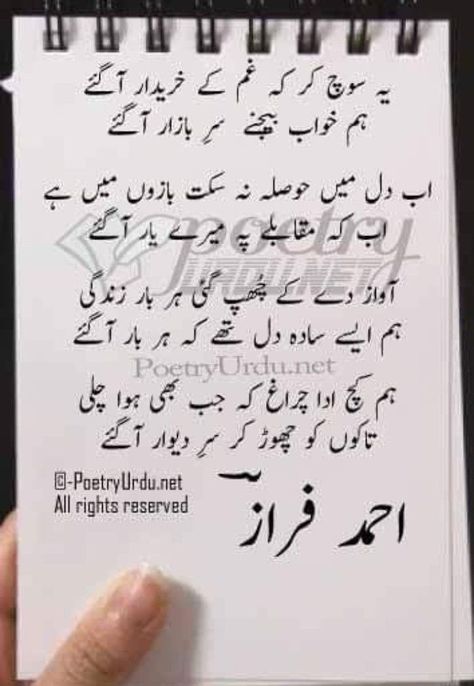 یہ سوچ کر کہ غم کے خریدار آ گئے
ہم خواب بیچنے سرِ بازار آ گئے
اب دل میں حوصلہ نہ سکت بازوں میں ہے
اب کہ مقابلے پہ میرے یار آ گئے
poetry
URDU.NET
آواز دے کے چُھپ گئی ہر بار زندگی
ہم ایسے سادہ دل تھے کہ ہر بار آ گئے
PoetryUrdu.net
ہم کج ادا چراغ کہ جب بھی ہوا چلی
تاکوں کو چھوڑ کر سرِ دیوار آ گئے
©-PoetryUrdu.net
All rights reserved
احمد فراز